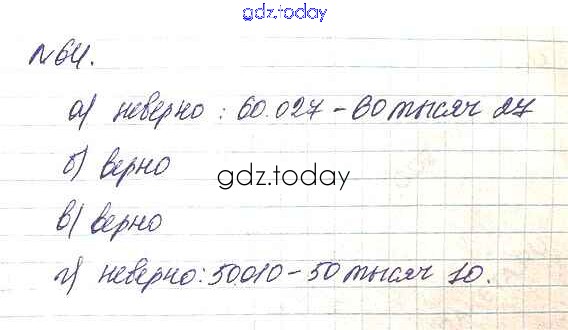 gdz.today
№64.
а) неверно: 60.027 – 60 тысяч 27
б) верно
gdz.today
в) верно
г) неверно: 50.010 – 50 тысяч 10.